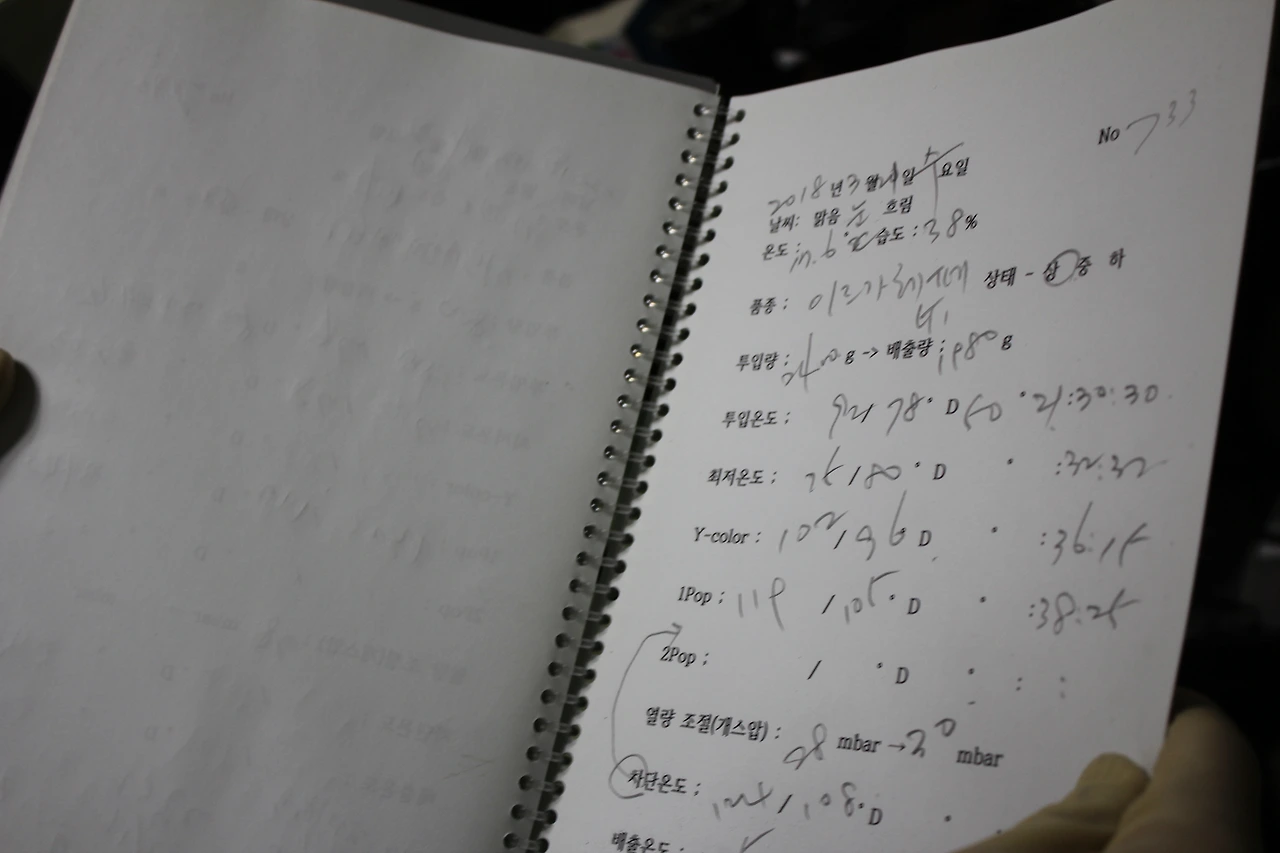 No 733
2018년 3월 21일 수요일
날씨: 맑음 눈 흐림
온도: .6 습도: 38%
품종: 이르가체페 상태 - 상 중 하
투입량: 2400g -> 배출량: 1980g
투입온도: 78° D 60 ° 21:30:30
최저온도: 75/80° D ° :32:32
Y-color: 102/96 D ° :36:15
1Pop: 119 /105° D ° :38:25
2Pop: / ° D ° : :
열량 조절(개스압): 98 mbar →30 mbar
차단온도: 124/108° D °
배출온도: